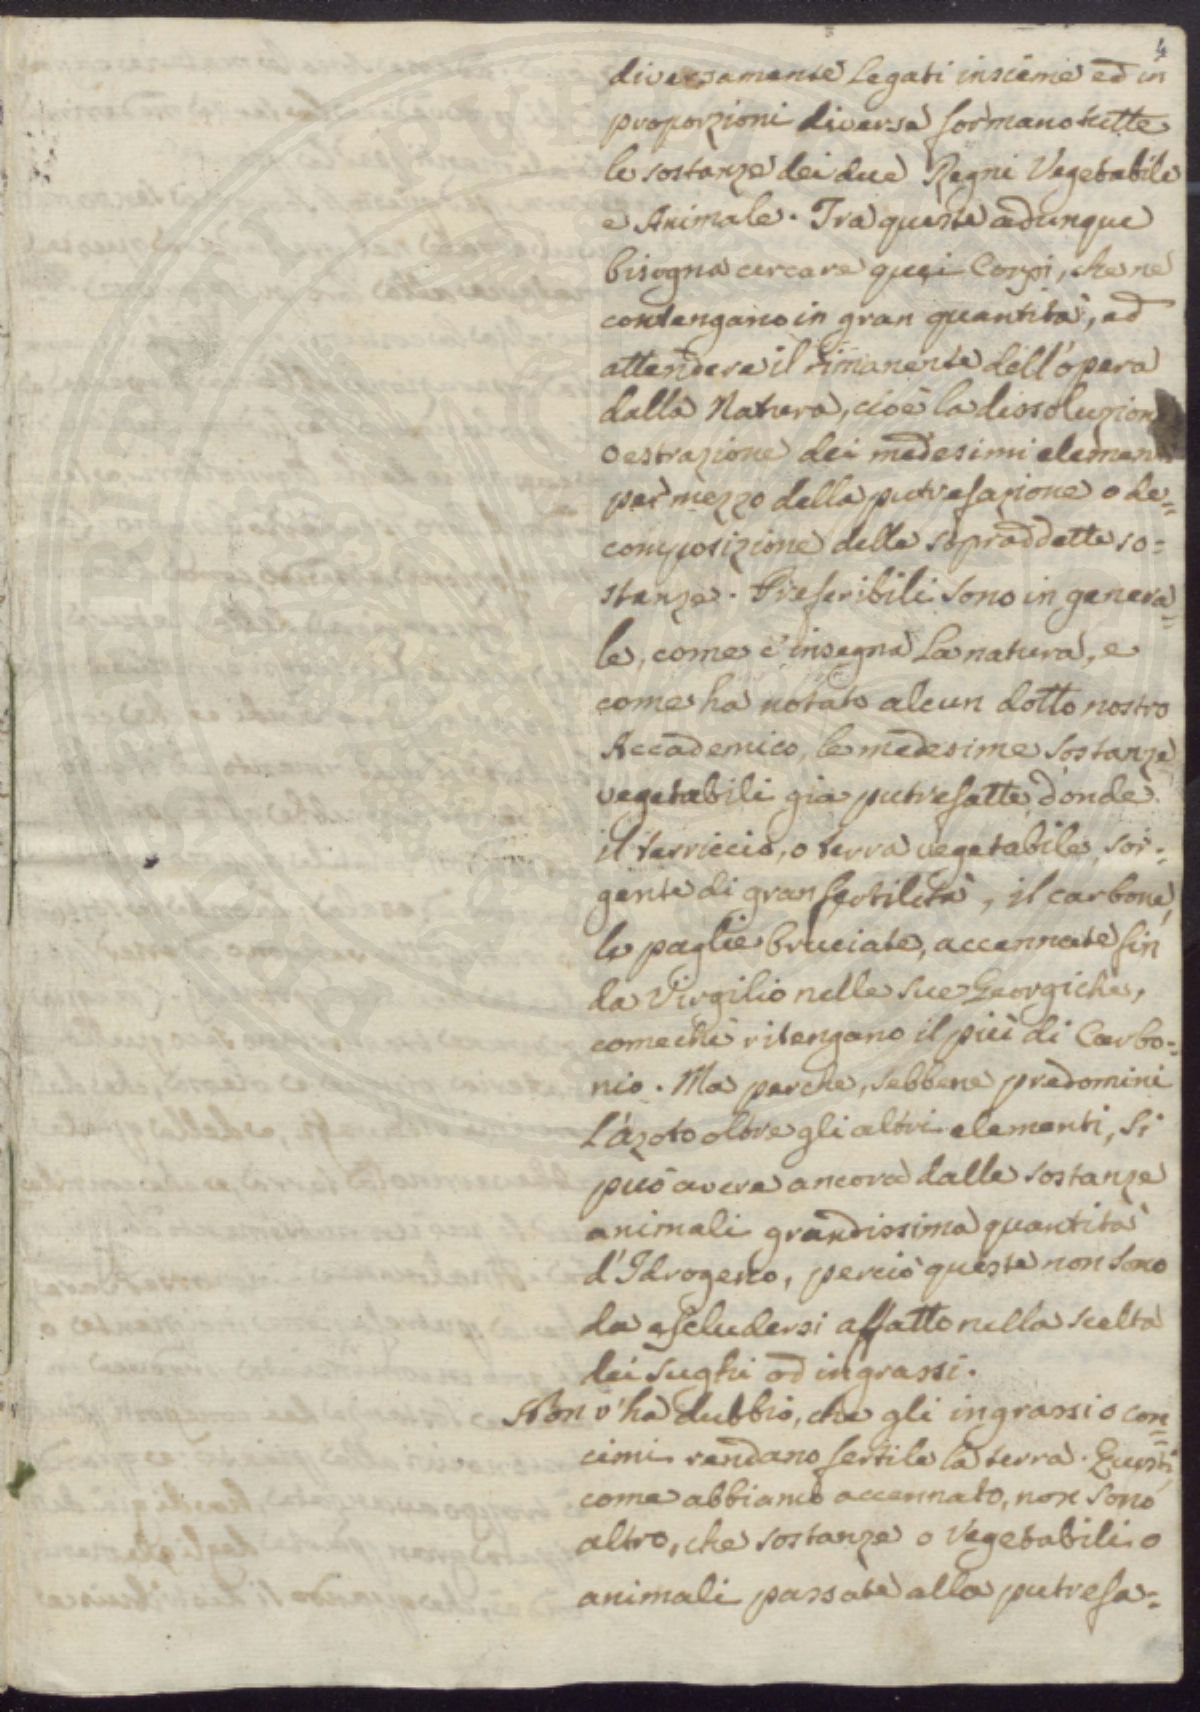 4
diversamente legati insieme ed in
proporzioni diverse formano tutte
le sostanze dei due Regni Vegetabile
e Animale. Tra queste adunque
bisogna cercare quei Corpi, che ne
contengano in gran quantità, ed
attendere il rimanente dell'opera
dalla Natura, cioè la dissoluzione
o estrazione dei medesimi elementi
per mezzo della putrefazione o de=
composizione delle sopraddette so=
stanze. Preferibili sono in genera=
le, come c'insegna la natura, e
come ha notato alcun dotto nostro
Accademico, le medesime sostanze
vegetabili già putrefatte, donde
il terriccio, o terra vegetabile, sor=
gente di gran fertilità, il carbone,
le paglie bruciate, accennate fin
da Virgilio nelle sue Georgiche,
comechè ritengano il più di Carbo=
nio. Ma perche, sebbene predomini
L'azoto oltre gli altri elementi, si
può avere ancora dalle sostanze
animali grandissima quantità
d'Idrogeno, perciò queste non sono
da escludersi affatto nella scelta
dei sughi od ingrassi.
Non v'ha dubbio, che gli ingrassi o con=
cimi rendano fertile la terra. Questi,
come abbiamo accennato, non sono
altro, che sostanze o Vegetabili o
animali passate alla putrefa=